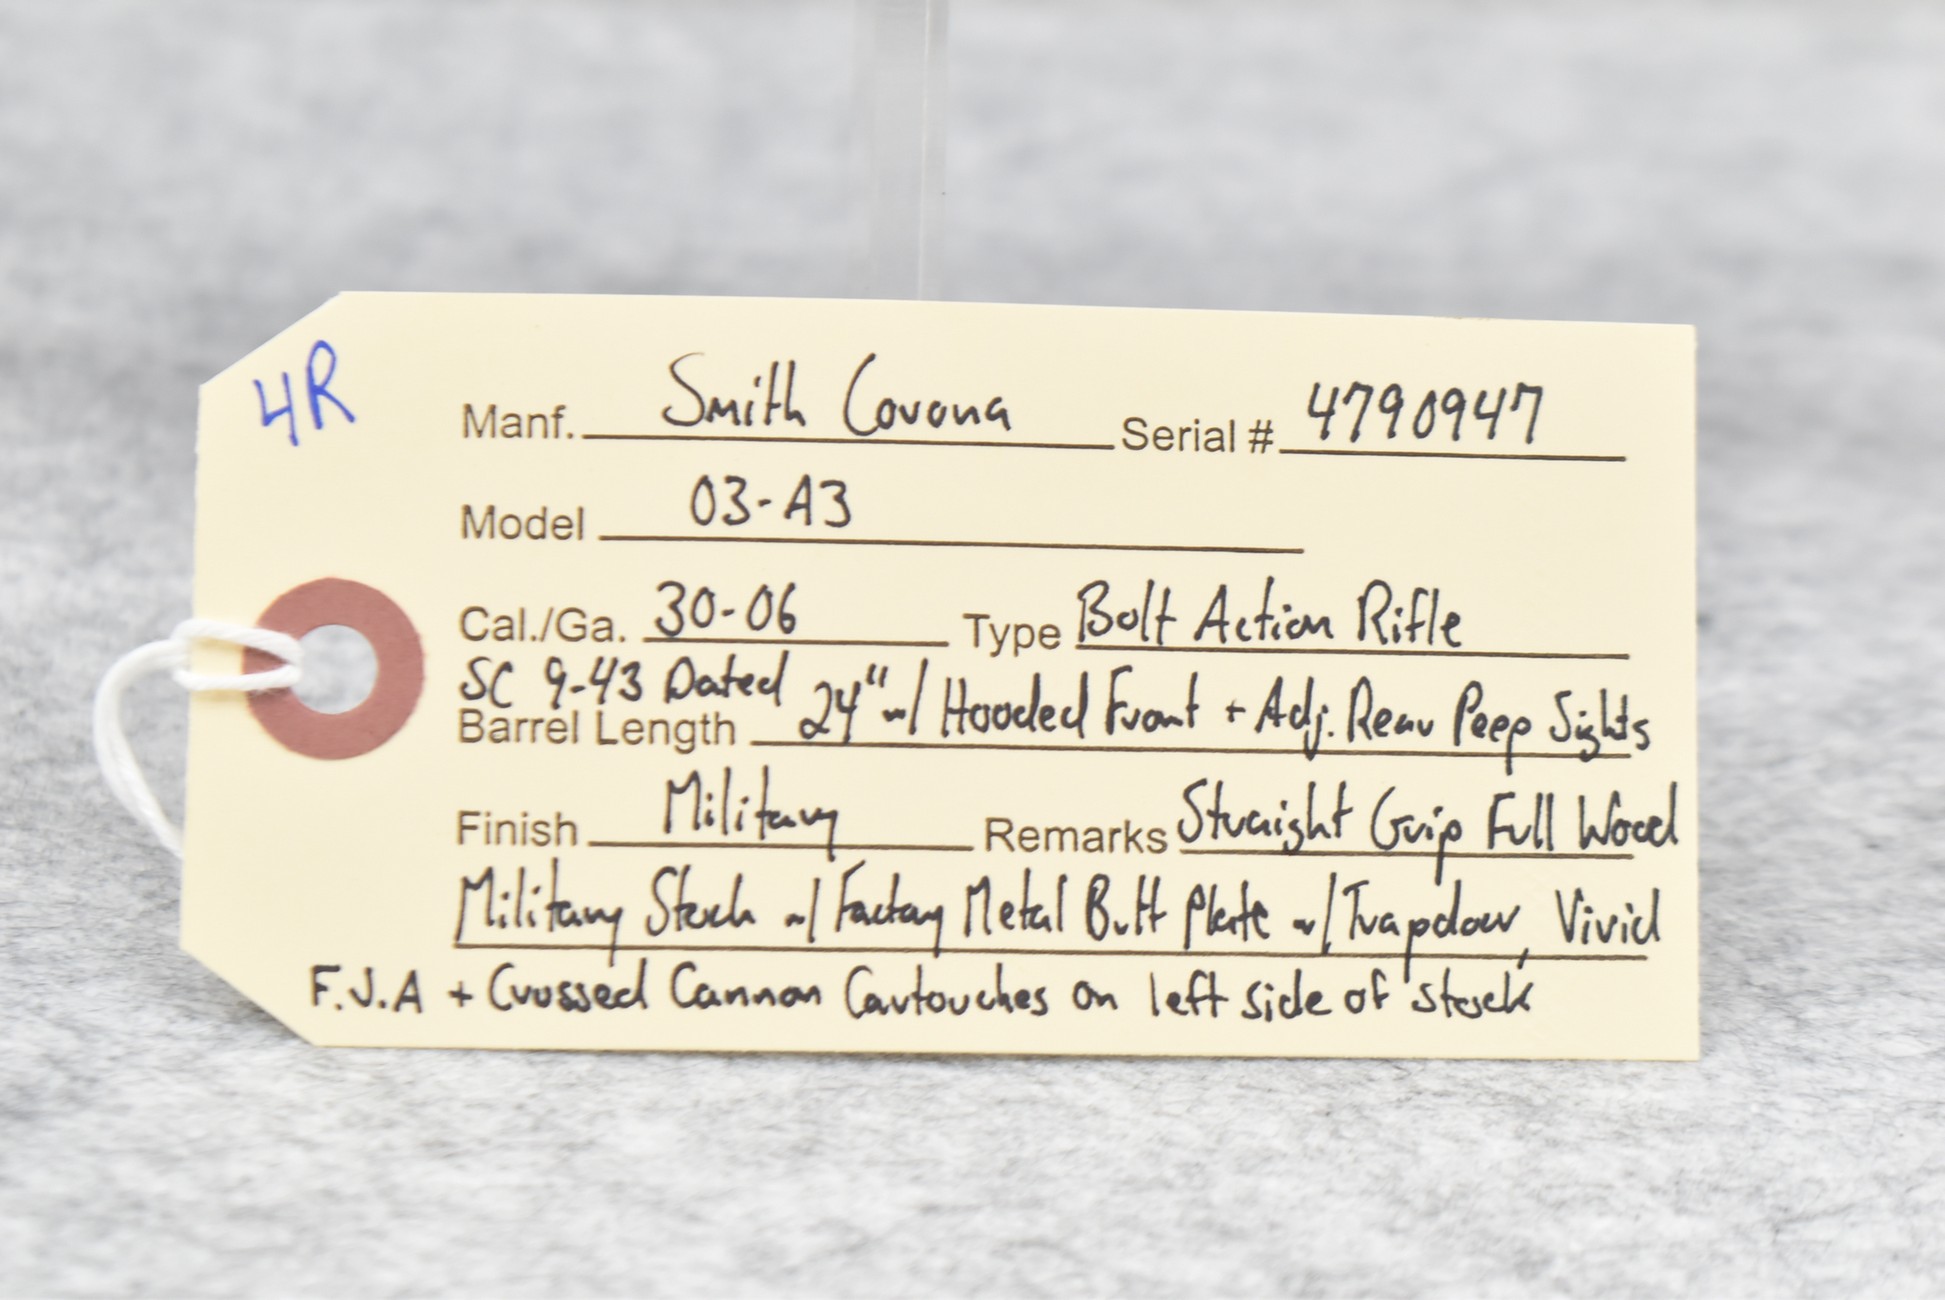 4R
Manf. Smith Corona Serial # 4790947
Model 03-A3
Cal./Ga. 30-06 Type Bolt Action Rifle
SC 9-43 Dated
Barrel Length 24" w/ Hooded Front + Adj. Rear Peep Sights
Finish Military Remarks Straight Grip Full Wood
Military Stock w/ Factory Metal Butt Plate w/ Trapdoor, Vivid
F.J.A + Crossed Cannon Cartouches on left side of stock